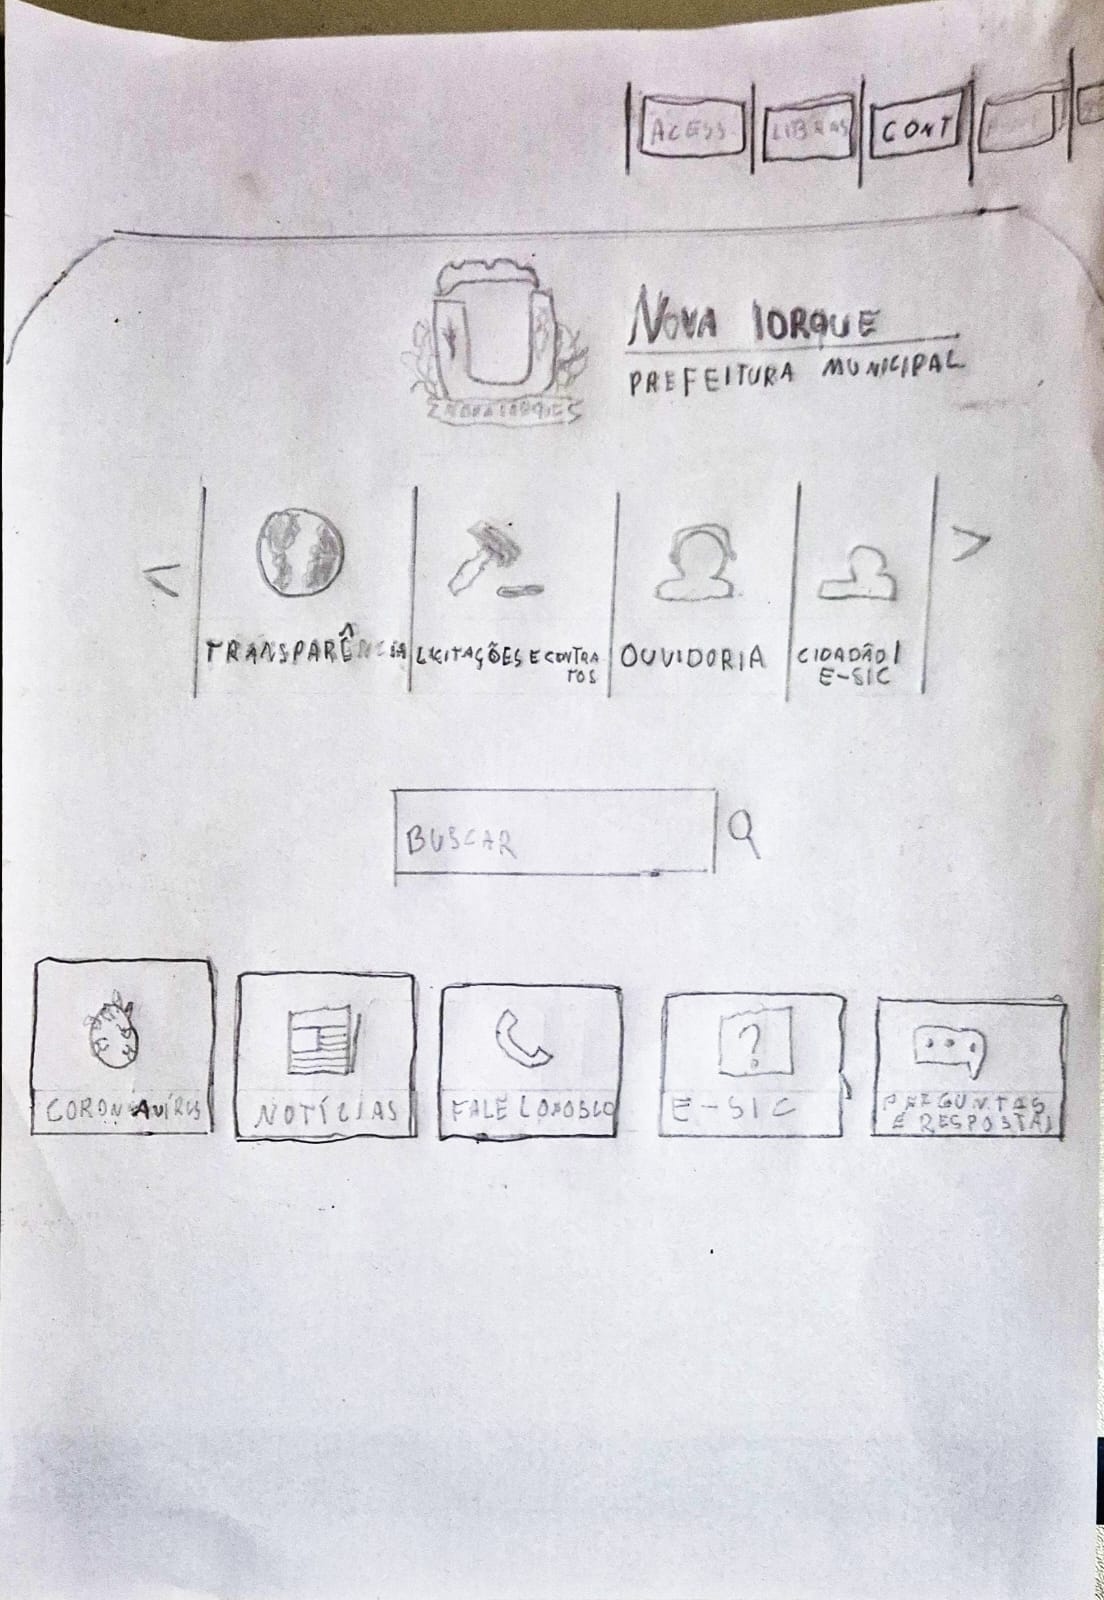 ACESS.
LIBRAS
CONT
NOVA IORQUE
PREFEITURA MUNICIPAL
<
TRANSPARÊNCIA
LICITAÇÕES E CONTRA
TOS
OUVIDORIA
CIDADÃO/
E-SIC
>
BUSCAR
CORONAVÍRUS
NOTÍCIAS
FALE CONOSCO
E-SIC
?
PERGUNTAS
E RESPOSTAS